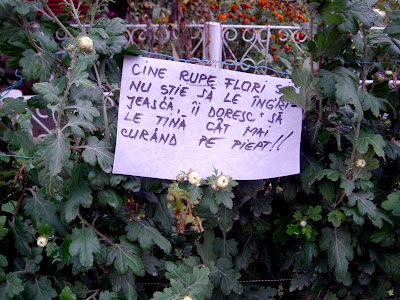 CINE RUPE FLORI Ș
NU ȘTIE SĂ LE ÎNGRI
JEASCĂ, ÎI DORESC SĂ
LE ȚINĂ CÂT MAI
CURÂND PE PIEPT!!